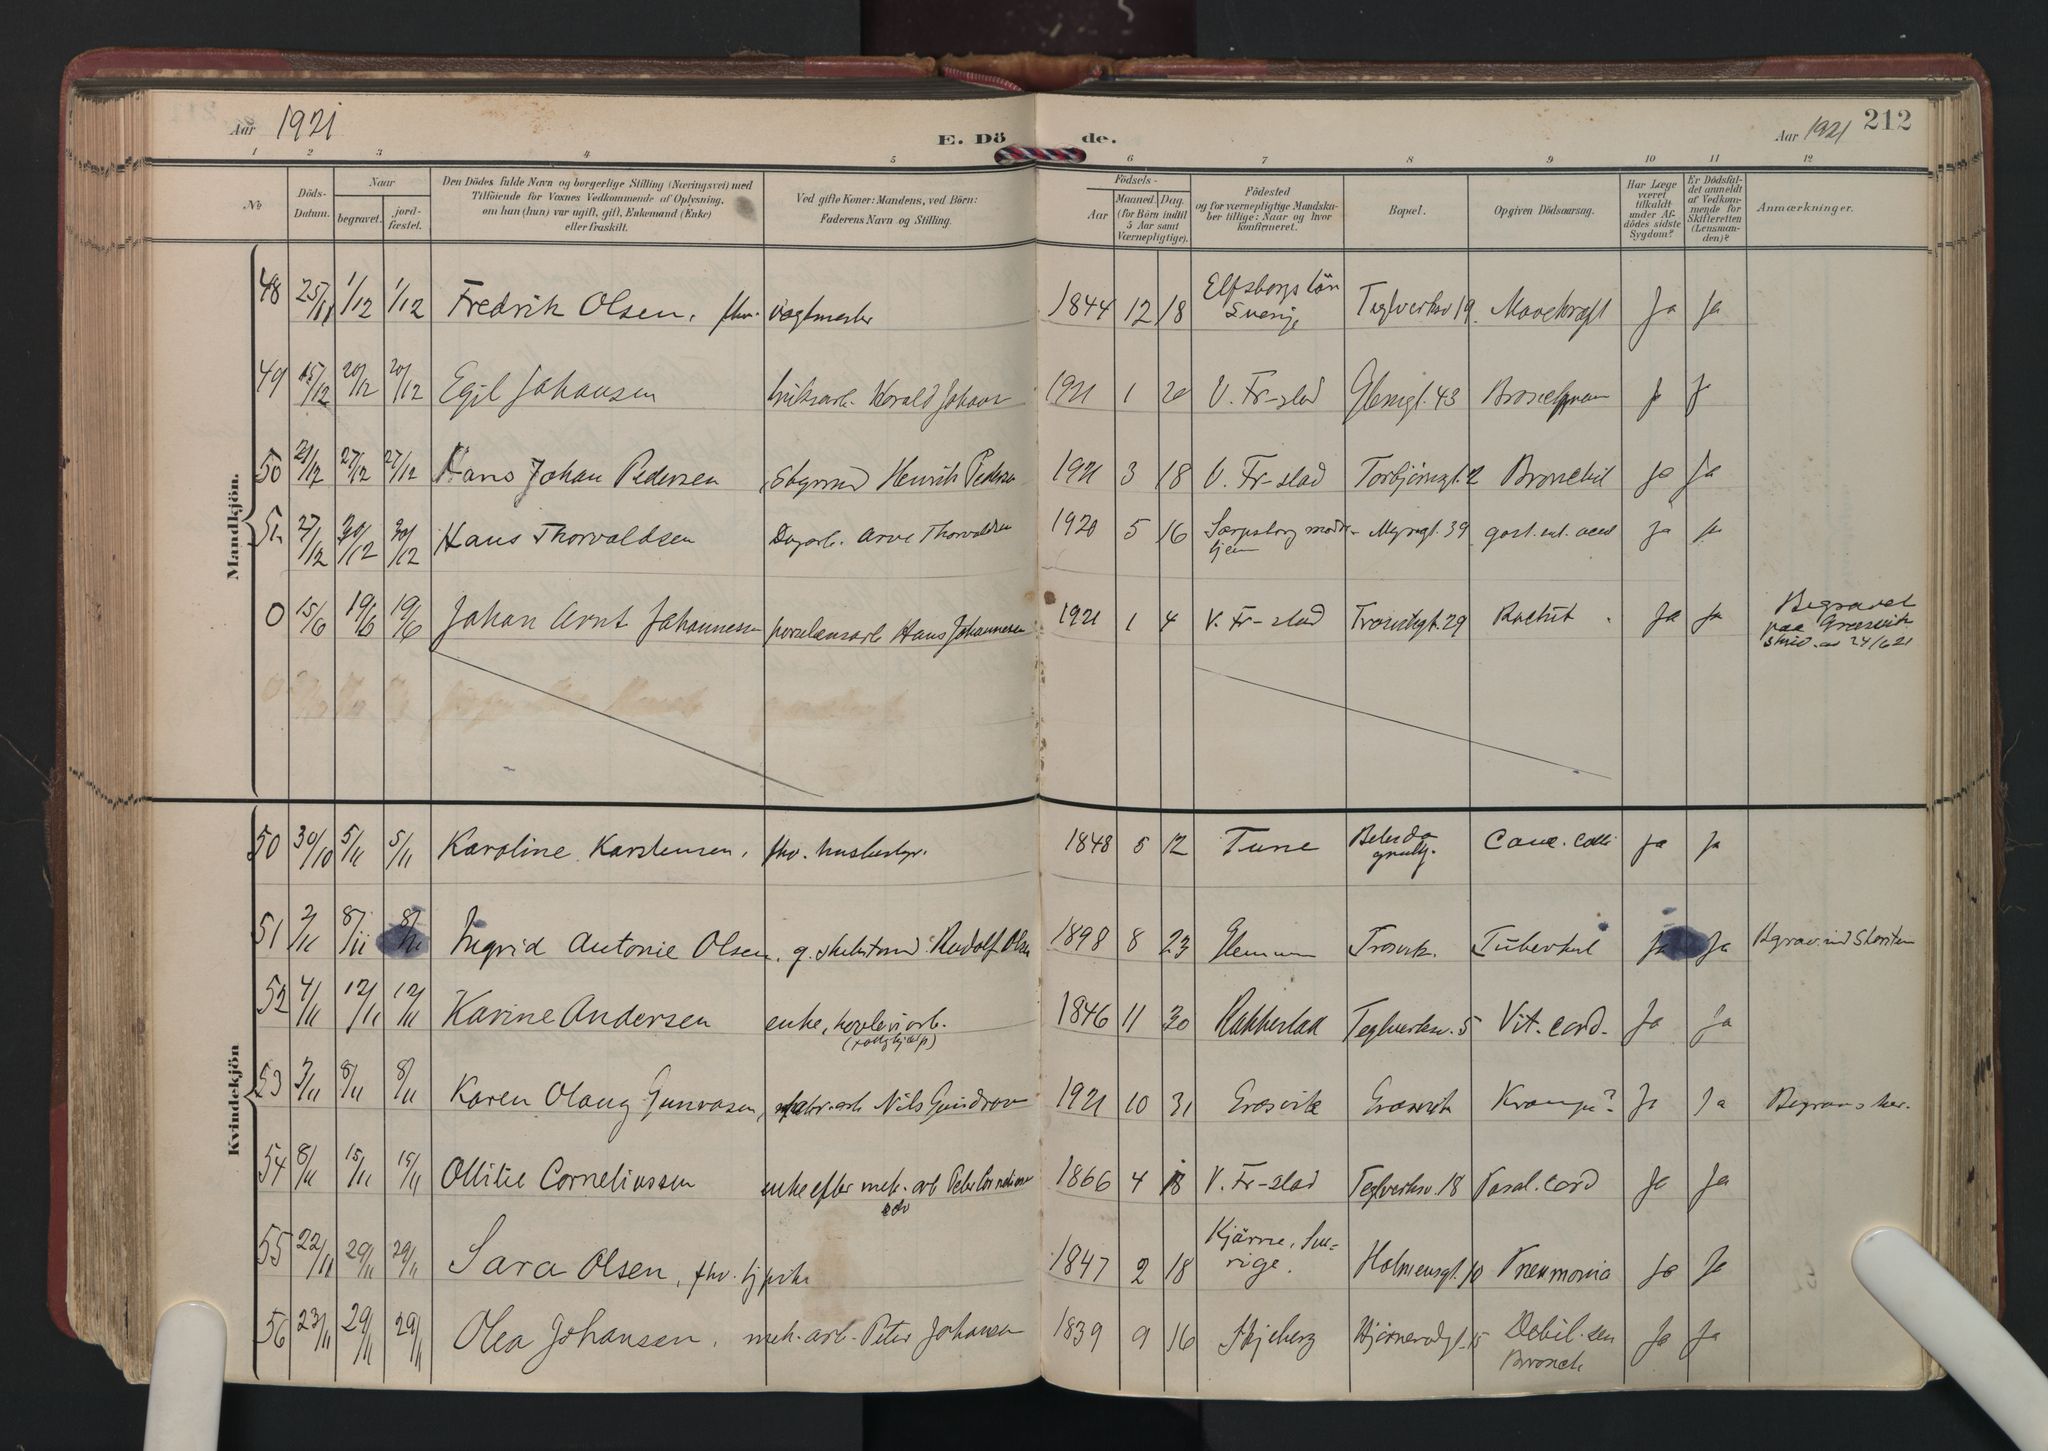 Aar 1921
E. Döde.
Aar 1921
212
1 2 3 4 5 6 7 8 9 10 11 12
No
Döds-Datum.
Naar
begravet.
jord-fæstet.
Den Dödes fulde Navn og borgerlige Stilling (Næringsvei) med
Tilföiende for Voxnes Vedkommende af Oplysning,
om han (hun) var ugift, gift, Enkemand (Enke)
eller fraskilt.
Ved gifte Koner: Mandens, ved Börn:
Faderens Navn og Stilling.
Födsels-
Aar
Maaned. Dag.
(for Börn indtil
5 Aar samt
Værnepligtige).
Födested
og for værnepligtige Mandska-
ber tillige: Naar og hvor
konfirmeret.
Bopæl.
Opgiven Dödsaarsag.
Har Læge
været
tilkaldt
under Af-
dödes sidste
Sygdom?
Er Dödsfal-
det anmeldt
af Vedkom-
mende for
Skifteretten
(Lensman-
den)?
Anmærkninger.
Mandkjön.
48 25/11 1/12 1/12 Fredrik Olsen, fhv. vagtmester 1844 12 18 Elfsborgs län Sverige Teglverksv 19. Ja Ja
49 15/12 20/12 20/12 Egil Johansen Harald Johans 1921 1 20 V. Fr-stad Glemgt. 43 Ja
50 21/12 27/12 27/12 Hans Johan Pedersen Henrik Pedersen 1921 3 18 V. Fr-stad Torbjörnsgt. 2 Ja Ja
51 27/12 30/12 30/12 Hans Thorvaldsen Dagarb. Arve Thorvaldsen 1920 5 16 Sarpsborg mødrehjem Myragt. 39 gast. int. acut Ja Ja
0 15/6 19/6 19/6 Johan Arnt Johannessen porselensarb Hans Johannesen 1921 1 4 V. Fr-stad Trosvikgt. 29 Rachit Ja Ja Begravet paa Gressvik skrid. av 24/6 21
Kvindekjön
50 30/10 5/11 5/11 Karoline Karstensen, fhv. husbestyr. 1848 5 12 Tune Canc. Ja Ja
51 2/11 8/11 8/11 Ingrid Antonie Olsen, g. Rudolf Olsen 1898 8 23 Glemmen Trosvik. Tuberkul Ja Ja
52 4/11 12/11 12/11 Karine Andersen enke, 1846 11 30 Rakkestad Teglverksv. 5 Vit. cord. Ja Ja
53 3/11 8/11 8/11 Karen Olaug fabr. arb Nils 1921 10 31 Gressvik Krampe? Ja Ja
54 8/11 15/11 15/11 Ottilie Corneliussen enke efter mek. arb Peter Corneliussen 1866 4 18 V. Fr-stad Teglverksv. 18 cord Ja Ja
55 22/11 29/11 29/11 Sara Olsen, fhv. 1847 2 18 Kjärne, Sverige. Holmensgt. 10 Pneumonia Ja Ja
56 23/11 29/11 29/11 Olea Johansen, mek. arb. Peter Johansen 1839 9 16 Skjeberg Debil. sen Bronch Ja Ja